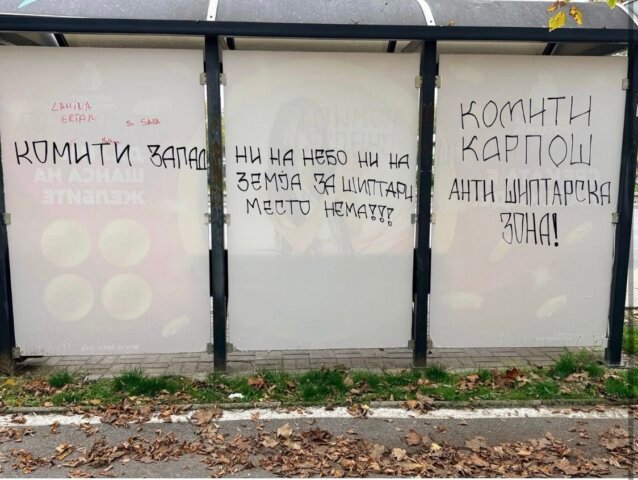 LAHINA
ERTAN
SARA
КОМИТИ ЗАПАД
НИ НА НЕБО НИ НА
ЗЕМЈА ЗА ШИПТАРИ
МЕСТО НЕМА!!!
КОМИТИ
КАРПОШ
АНТИ ШИПТАРСКА
ЗОНА!
ШАНСА НА
ЖЕЛБИТЕ
www.loto.mk